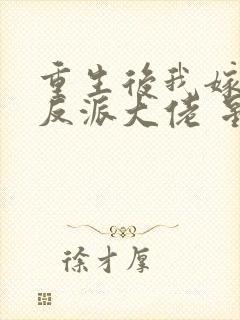 重生後我嫁
反派大佬
徐才厚